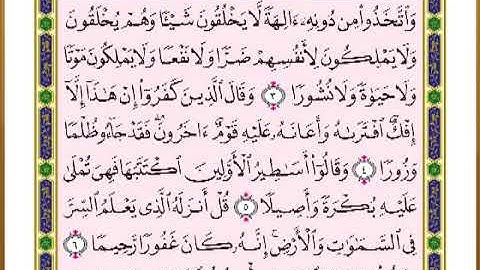 وَٱتَّخَذُواْ مِن دُونِهِۦٓ ءَالِهَةٗ لَّا يَخۡلُقُونَ شَيۡـٔٗا وَهُمۡ يُخۡلَقُونَ
وَلَا يَمۡلِكُونَ لِأَنفُسِهِمۡ ضَرّٗا وَلَا نَفۡعٗا وَلَا يَمۡلِكُونَ مَوۡتٗا
وَلَا حَيَوٰةٗ وَلَا نُشُورٗا ٣ وَقَالَ ٱلَّذِينَ كَفَرُوٓاْ إِنۡ هَٰذَآ إِلَّآ
إِفۡكٌ ٱفۡتَرَىٰهُ وَأَعَانَهُۥ عَلَيۡهِ قَوۡمٌ ءَاخَرُونَۖ فَقَدۡ جَآءُو ظُلۡمٗا
وَزُورٗا ٤ وَقَالُوٓاْ أَسَٰطِيرُ ٱلۡأَوَّلِينَ ٱكۡتَتَبَهَا فَهِيَ تُمۡلَىٰ
عَلَيۡهِ بُكۡرَةٗ وَأَصِيلٗا ٥ قُلۡ أَنزَلَهُ ٱلَّذِي يَعۡلَمُ ٱلسِّرَّ
فِي ٱلسَّمَٰوَٰتِ وَٱلۡأَرۡضِۚ إِنَّهُۥ كَانَ غَفُورٗا رَّحِيمٗا ٦